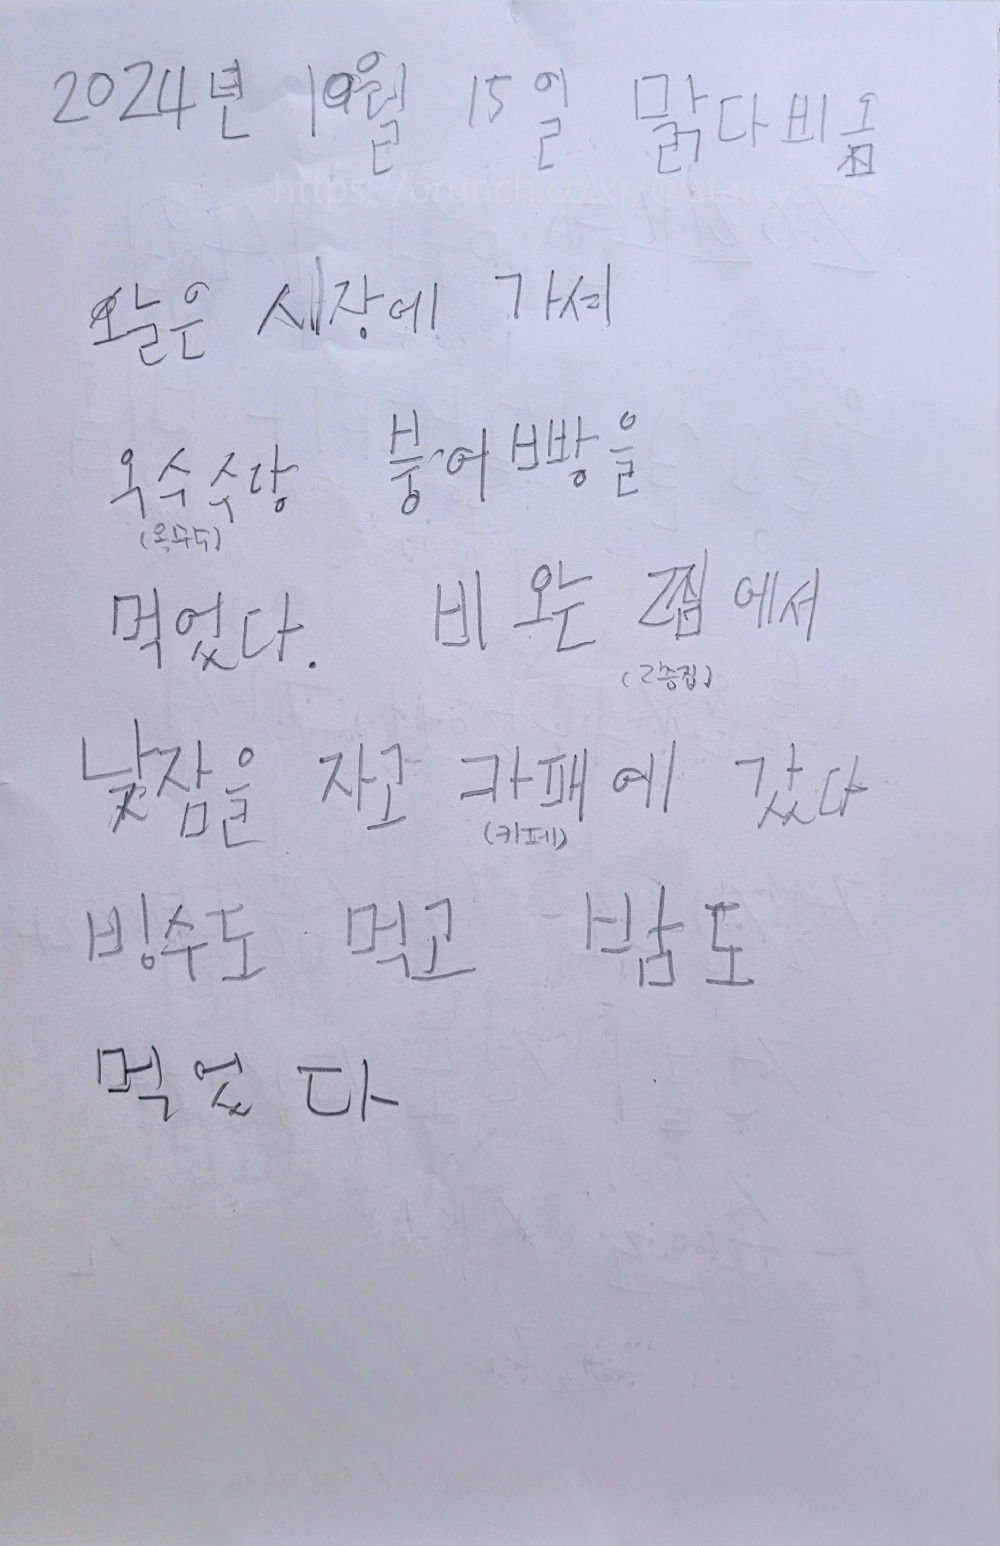 2024년 10월 15일 맑다비옴
https://brunch.co.kr/@starrysky
오늘은 시장에 가서
옥수수랑 붕어빵을
(옥수수)
먹었다. 비 오는 2찝에서
(2층집)
낮잠을 자고 카패에 갔다
(카페)
빙수도 먹고 밤도
먹었다